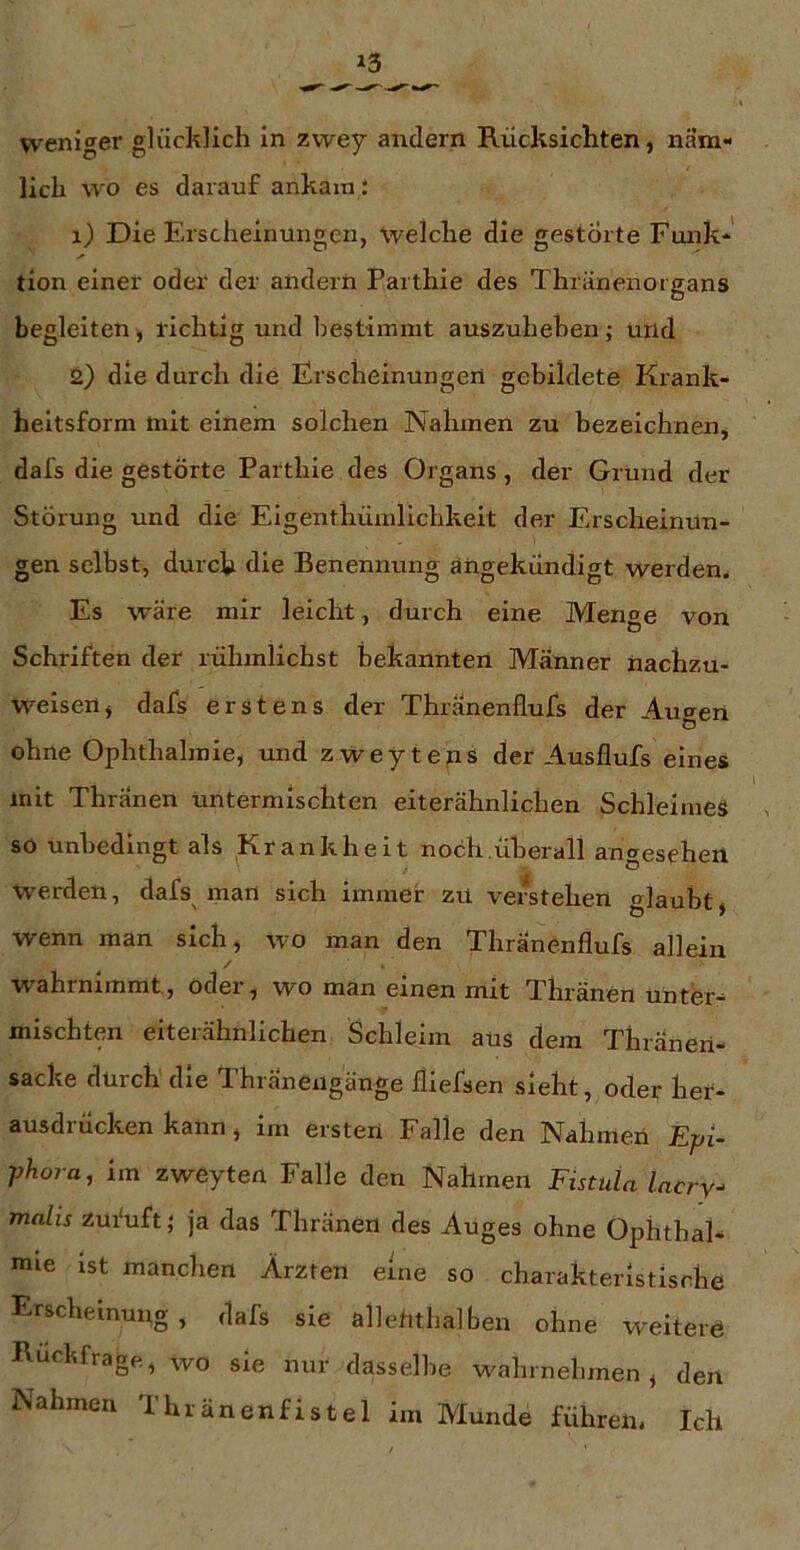 13
weniger glücklich in zwey andern Rücksichten, näm-
lich wo es darauf ankam:
1) Die Erscheinungen, welche die gestörte Funk-
tion einer oder der andern Parthie des Thränenorgans
begleiten, richtig und bestimmt auszuheben; und
2) die durch die Erscheinungen gebildete Krank-
heitsform mit einem solchen Nahmen zu bezeichnen,
dafs die gestörte Parthie des Organs, der Grund der
Störung und die Eigenthümlichkeit der Erscheinun-
gen selbst, durch die Benennung angekündigt werden.
Es wäre mir leicht, durch eine Menge von
Schriften der rühmlichst bekannten Männer nachzu-
weisen, dafs erstens der Thränenflufs der Augen
ohne Ophthalmie, und zweytens der Ausflufs eines
mit Thränen untermischten eiterähnlichen Schleimes
so unbedingt als Krankheit noch überall angesehen
werden, dafs man sich immer zu verstehen glaubt,
wenn man sich, wo man den Thränenflufs allein
wahrnimmt, oder, wo man einen mit Thränen unter-
mischten eiterähnlichen Schleim aus dem Thränen-
sacke durch die Thränengänge fliefsen sieht, oder her-
ausdrücken kann, im ersten Falle den Nahmen Epi-
phora, im zweyten Falle den Nahmen Fistula lacry-
malis zuruft; ja das Thränen des Auges ohne Ophthal-
mie ist manchen Ärzten eine so charakteristische
Erscheinung, dafs sie allenthalben ohne weitere
Rückfrage, wo sie nur dasselbe wahrnehmen, den
Nahmen Thränenfistel im Munde führen. Ich